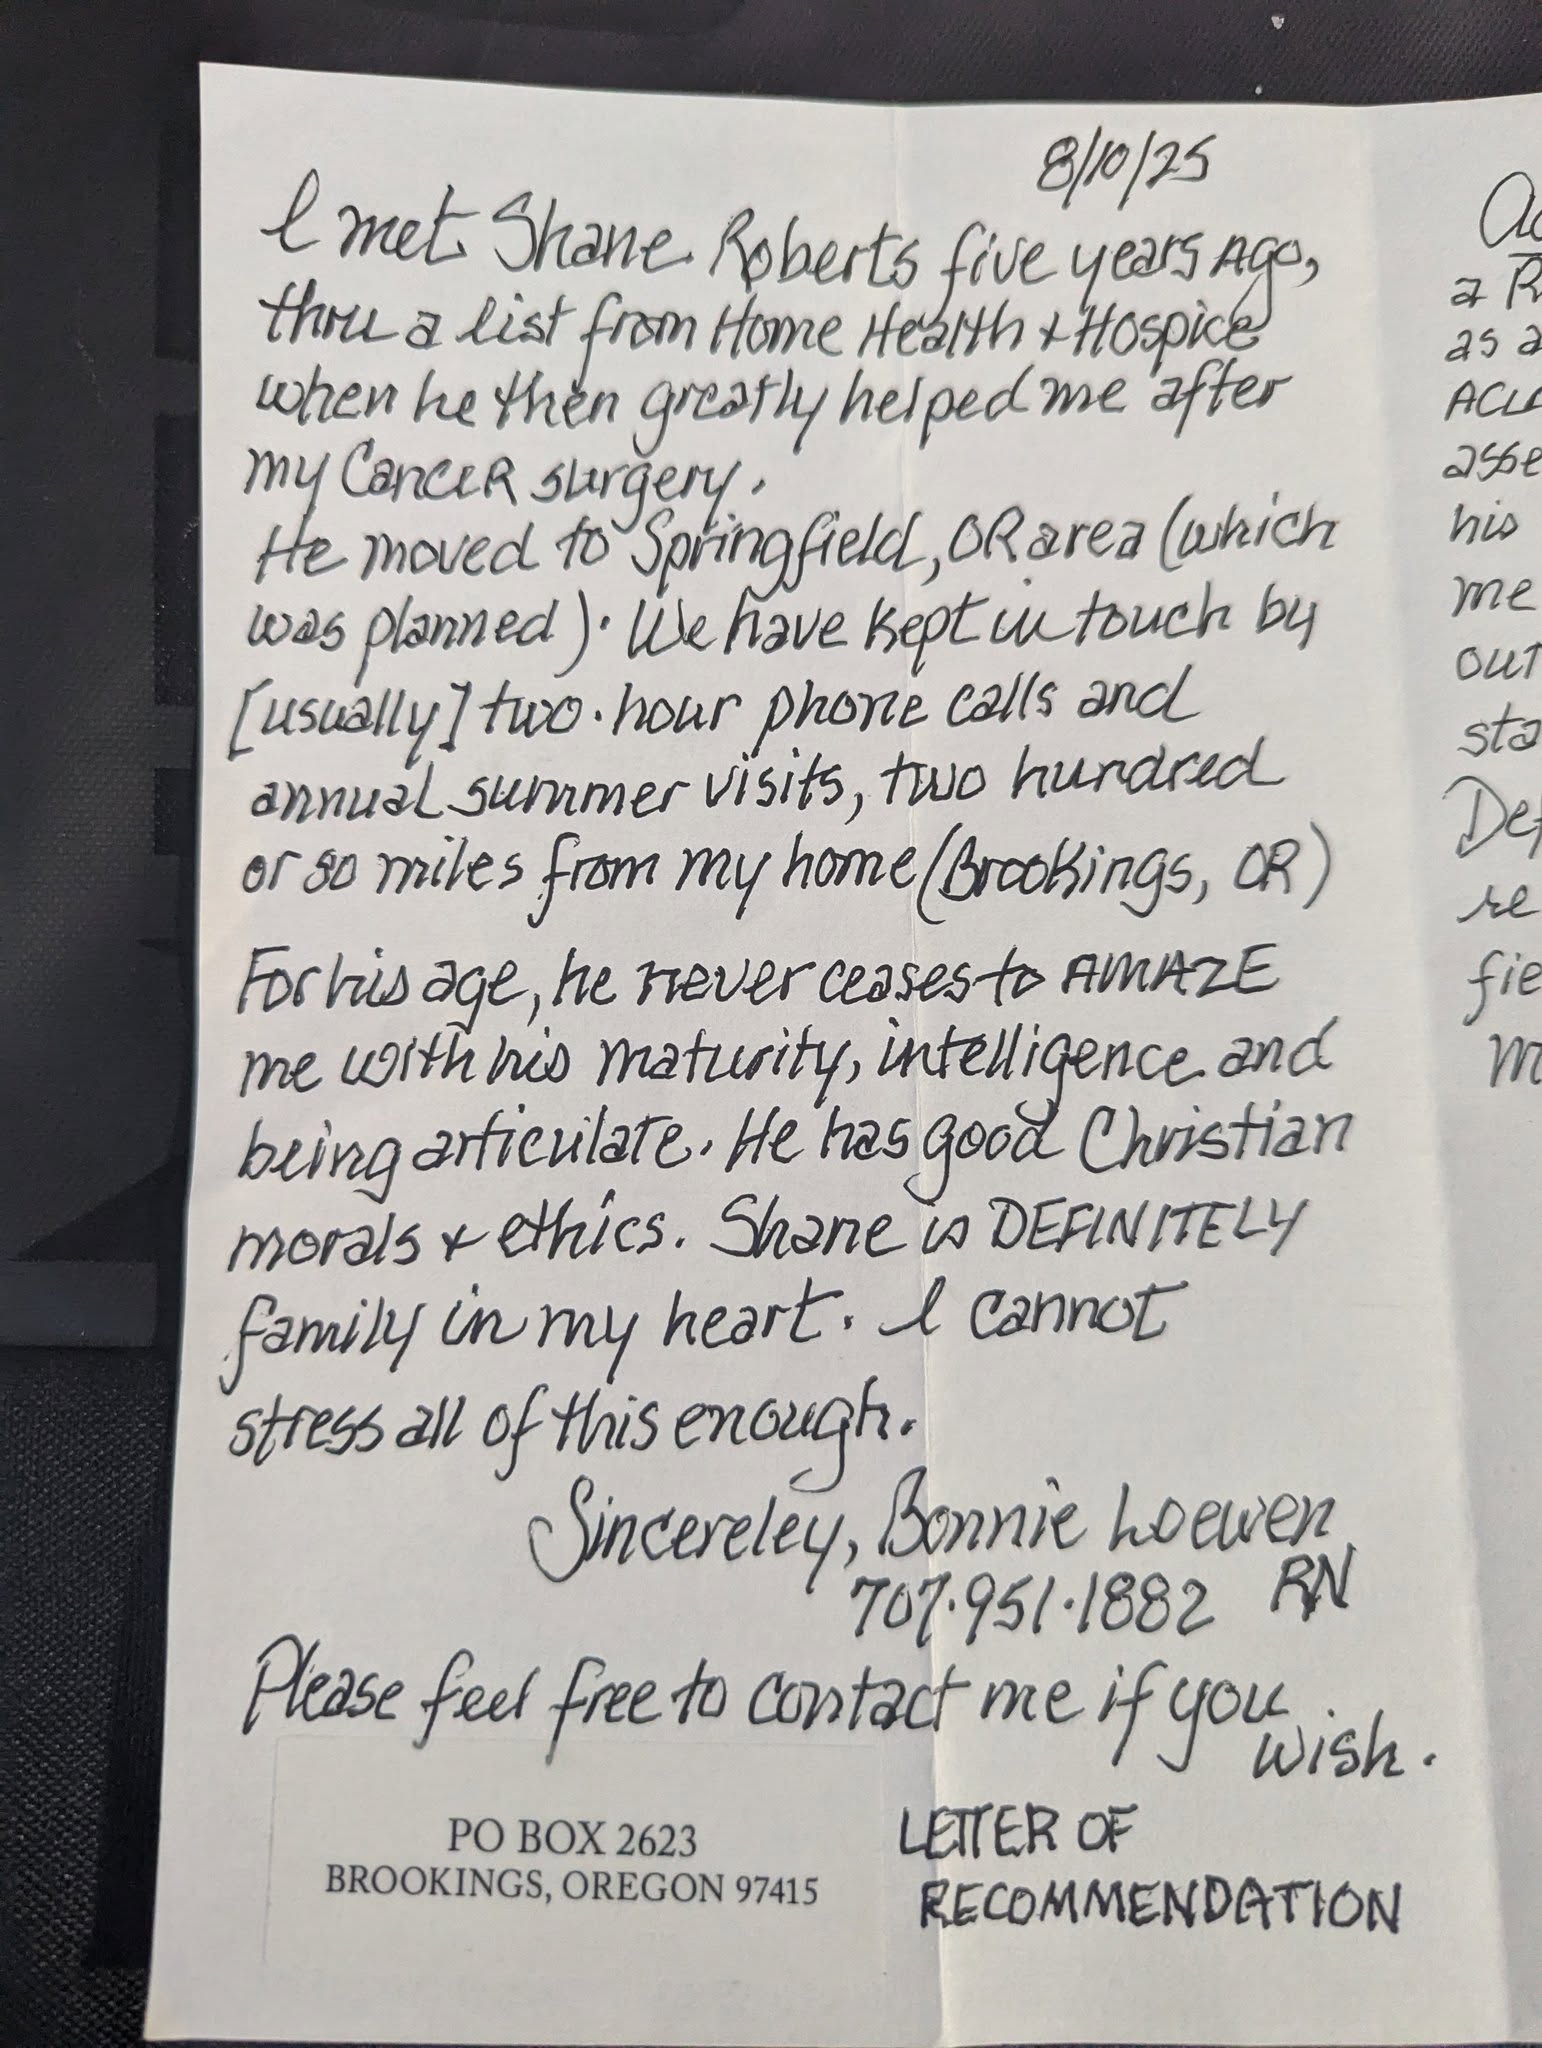 8/10/25
I met Shane Roberts five years ago,
thru a list from Home Health + Hospice
when he then greatly helped me after
my Cancer surgery.
He moved to Springfield, OR area (which
was planned). We have kept in touch by
[usually] two-hour phone calls and
annual summer visits, two hundred
or so miles from my home (Brookings, OR)
For his age, he never ceases to AMAZE
me with his maturity, intelligence and
being articulate. He has good Christian
morals + ethics. Shane is DEFINITELY
family in my heart. I cannot
stress all of this enough.
Sincereley, Bonnie Loewen
RN
707.951.1882
Please feel free to contact me if you
wish.
PO BOX 2623
BROOKINGS, OREGON 97415
LETTER OF
RECOMMENDATION
a
as a
his
me
out